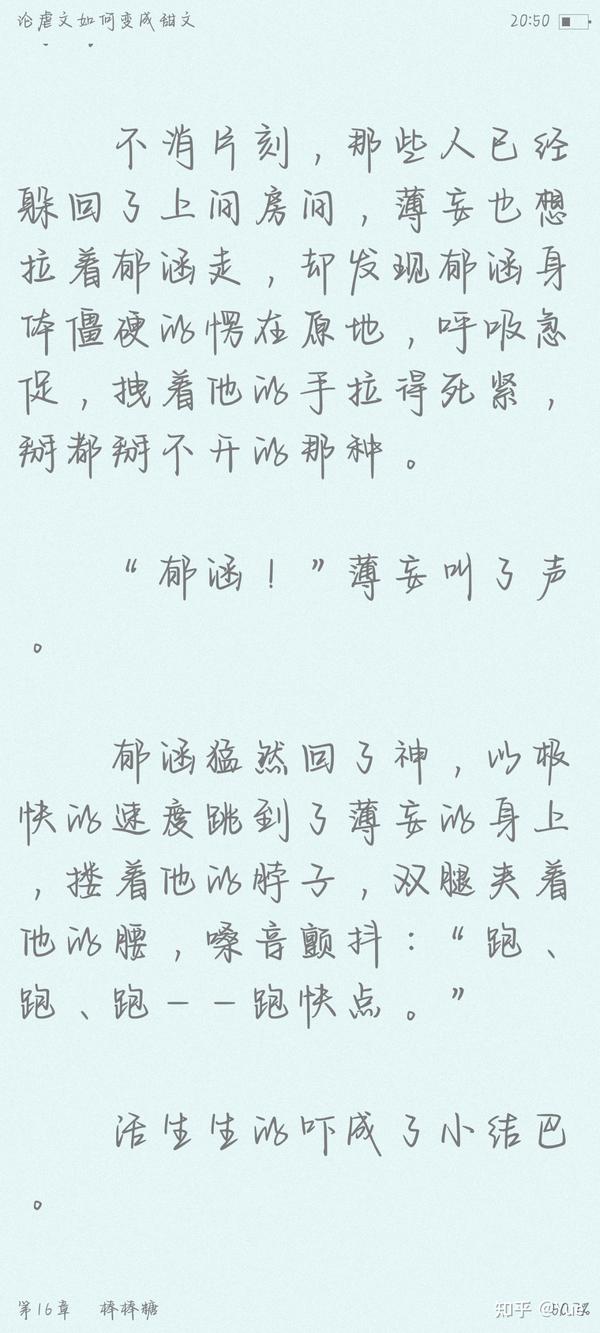 论虐文如何变成甜文 20:50
不消片刻，那些人已经
躲回了上间房间，薄妄也想
拉着郁涵走，却发现郁涵身
体僵硬的愣在原地，呼吸急
促，拽着他的手拉得死紧，
掰都掰不开的那种。
“郁涵！”薄妄叫了声
。
郁涵猛然回了神，以极
快的速度跳到了薄妄的身上
，搂着他的脖子，双腿夹着
他的腰，嗓音颤抖：“跑、
跑、跑——跑快点。”
活生生的吓成了小结巴
。
第16章 棒棒糖 知乎